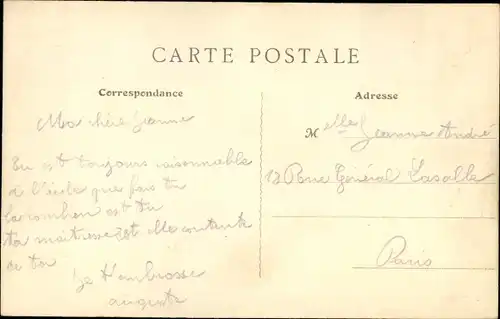 CARTE POSTALE
Correspondance
Ma chère Jeanne
Tu est toujours raisonnable
à l'école que fais tu
la combien est tu
ta maitresse est elle contente
de toi
Je t'embrasse
auguste
Adresse
Melle Jeanne André
13 Rue Général Lasalle
Paris